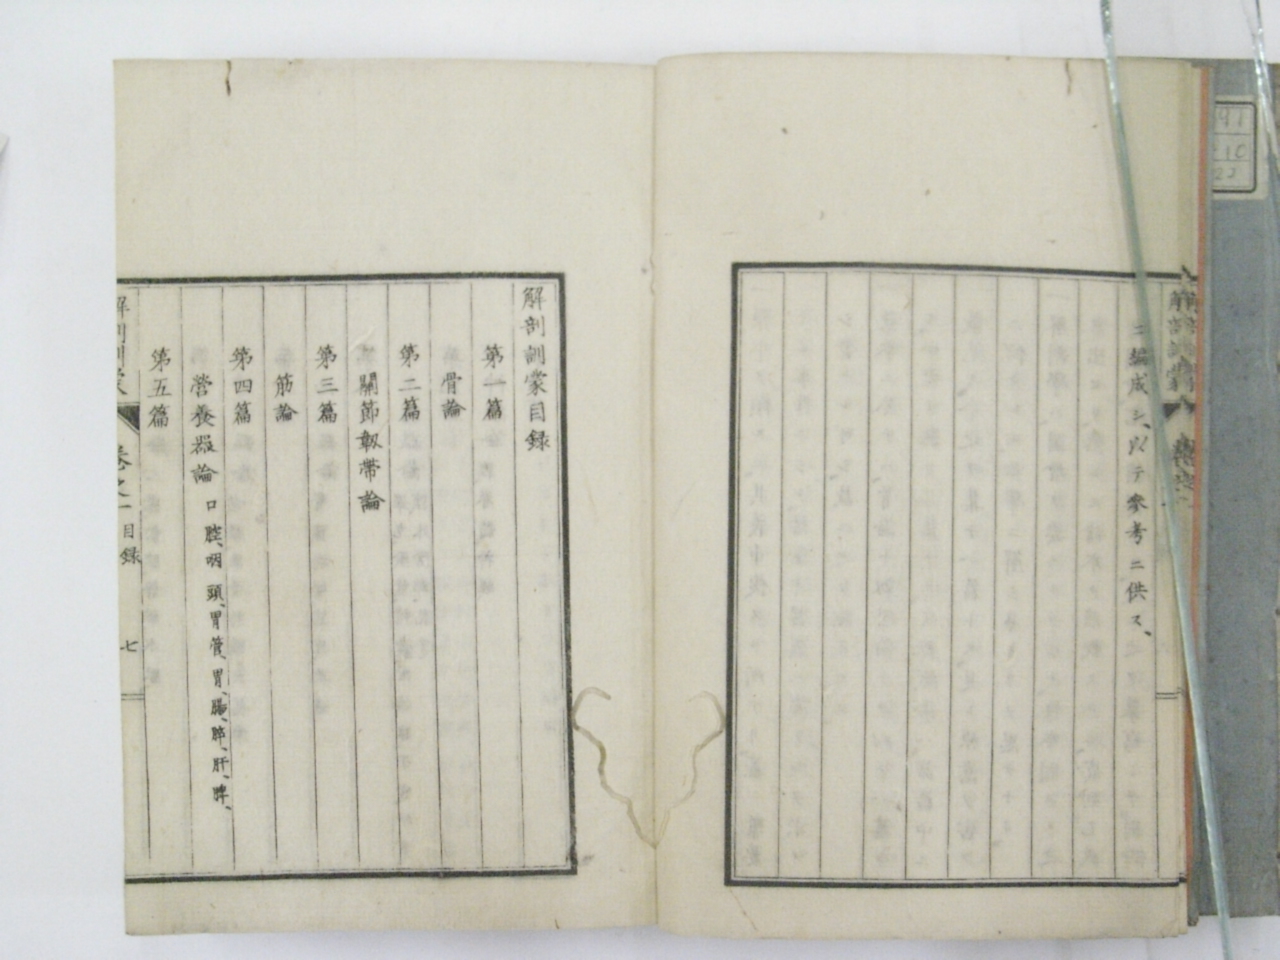 ニ編成シ、以テ參考ニ供ス、
解剖訓蒙目録
第一篇
骨論
第二篇
關節靱帶論
第三篇
筋論
第四篇
營養器論 口腔、咽頭、胃管、胃、腸、膵、肝、脾、
第五篇
解剖訓蒙 卷之一 目録 七